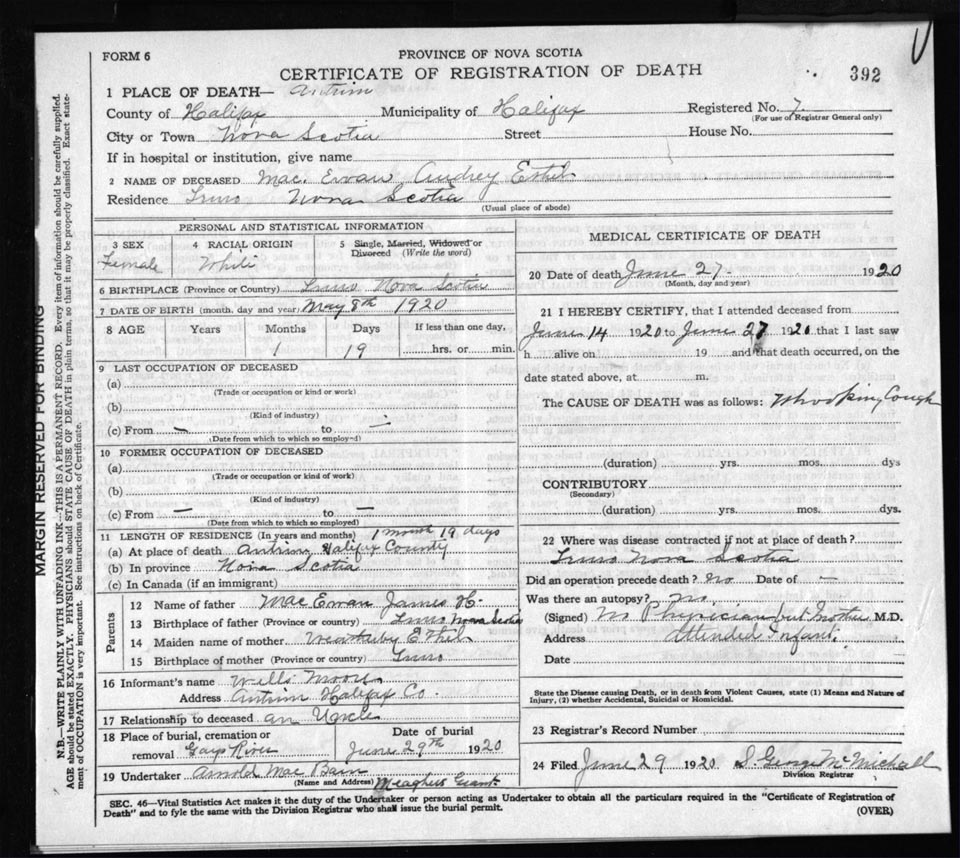 FORM 6
PROVINCE OF NOVA SCOTIA
CERTIFICATE OF REGISTRATION OF DEATH
392
1 PLACE OF DEATH— Antrim
County of Halifax Municipality of Halifax Registered No. 7
(For use of Registrar General only)
City or Town Nova Scotia Street House No.
If in hospital or institution, give name
2 NAME OF DECEASED Mac. Ewan Audrey Ethel
Residence Truro Nova Scotia
(Usual place of abode)
PERSONAL AND STATISTICAL INFORMATION
3 SEX 4 RACIAL ORIGIN 5 Single, Married, Widowed or
Divorced (Write the word)
Female White
6 BIRTHPLACE (Province or Country) Truro Nova Scotia
7 DATE OF BIRTH (month, day and year) May 8th 1920
8 AGE Years Months Days If less than one day,
1 19 hrs. or min.
9 LAST OCCUPATION OF DECEASED
(a)
(Trade or occupation or kind or work)
(b)
(Kind of industry)
(c) From — to —
(Date from which to which so employed)
10 FORMER OCCUPATION OF DECEASED
(a)
(Trade or occupation or kind of work)
(b)
(Kind of industry)
(c) From — to —
(Date from which to which so employed)
11 LENGTH OF RESIDENCE (In years and months) 1 month 19 days
(a) At place of death Antrim Halifax County
(b) In province Nova Scotia
(c) In Canada (if an immigrant)
Parents
12 Name of father Mac Ewan James H.
13 Birthplace of father (Province or country) Truro Nova Scotia
14 Maiden name of mother Ethel
15 Birthplace of mother (Province or country) Truro
16 Informant's name Wells Moore
Address Antrim Halifax Co.
17 Relationship to deceased an Uncle
18 Place of burial, cremation or Date of burial
removal Gays River June 29th 1920
19 Undertaker Arnold Mac Bain
(Name and Address) Meaghers Grant
MEDICAL CERTIFICATE OF DEATH
20 Date of death June 27 - 1920
(Month, day and year)
21 I HEREBY CERTIFY, that I attended deceased from
June 14 1920 to June 27 1920 that I last saw
h alive on 19 and that death occurred, on the
date stated above, at m.
The CAUSE OF DEATH was as follows: Whooking Cough
(duration) yrs. mos. dys
CONTRIBUTORY
(Secondary)
(duration) yrs. mos. dys.
22 Where was disease contracted if not at place of death?
Truro Nova Scotia
Did an operation precede death? No Date of —
Was there an autopsy? No
(Signed) No Physician but Mother M.D.
Address attended Infant.
Date
State the Disease causing Death, or in death from Violent Causes, state (1) Means and Nature of
Injury, (2) whether Accidental, Suicidal or Homicidal.
23 Registrar's Record Number
24 Filed June 29 1920 S. George McMichall
Division Registrar
SEC. 46—Vital Statistics Act makes it the duty of the Undertaker or person acting as Undertaker to obtain all the particulars required in the "Certificate of Registration of
Death" and to fyle the same with the Division Registrar who shall issue the burial permit.
(OVER)
MARGIN RESERVED FOR BINDING
N.B.—WRITE PLAINLY WITH UNFADING INK—THIS IS A PERMANENT RECORD. Every item of information should be carefully supplied.
AGE should be stated EXACTLY. PHYSICIANS should STATE CAUSE OF DEATH in plain terms, so that it may be properly classified. Exact state-
ment of OCCUPATION is very important. See instructions on back of Certificate.